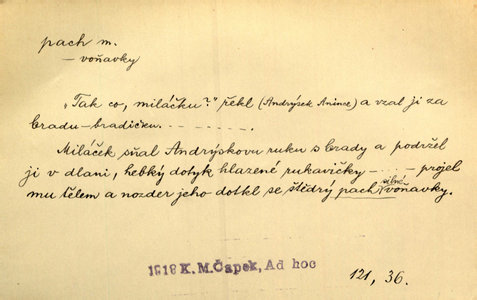 pach m.
– voňavky
„Tak co, miláčku?" řekl (Andrýsek Anince) a vzal ji za
bradu-bradičku. - - - - - - -
Miláček sňal Andrýskovu ruku s brady a podržel
ji v dlani, hebký dotyk hlazené rukavičky - - - projel
mu tělem a nozder jeho dotkl se štědrý pach silné voňavky.
1918 K. M. Čapek, Ad hoc
121, 36.